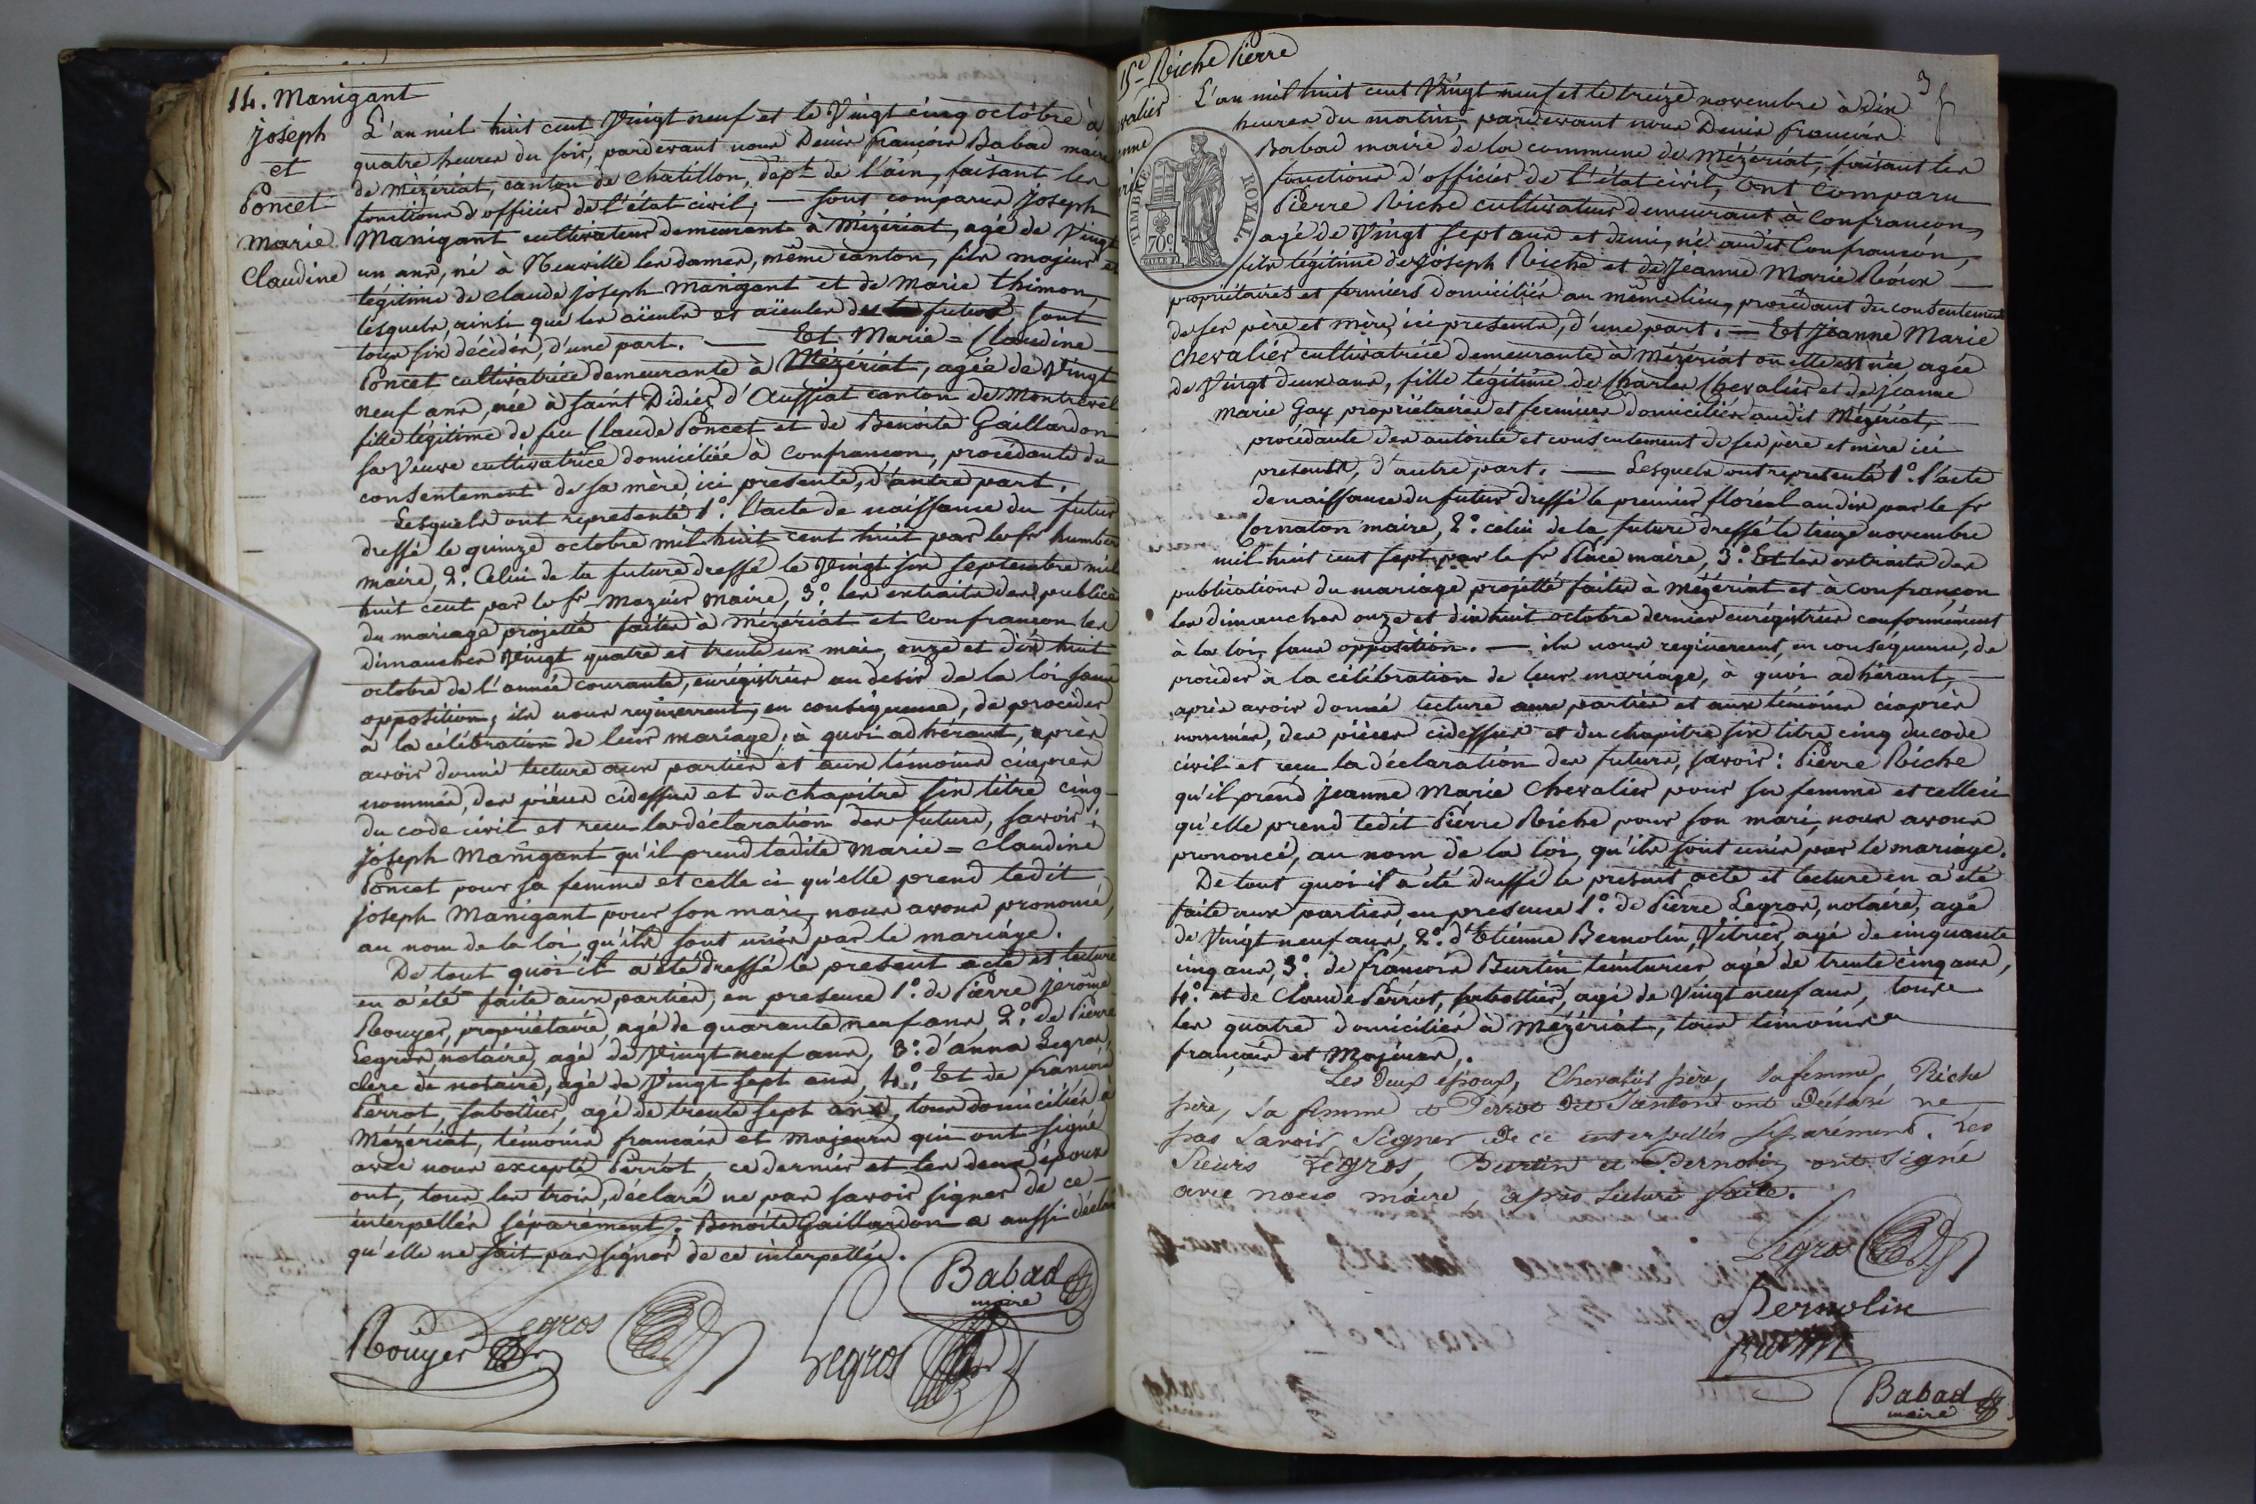 14. Manigant
Joseph
et
Poncet
Marie
Claudine
L'an mil huit cent Vingt neuf et le Vingt cinq octobre à
quatre heures du soir, pardevant nous Denis françois Babad maire
de Mézériat, canton de Chatillon, dépt. de l'ain, faisant les
fonctions d'officier de l'état civil, — sont comparus Joseph
Manigant cultivateur demeurant à Mézériat, agé de Vingt
un ans, né à Neuville les dames, même canton, fils majeur et
légitime de Claude Joseph Manigant et de Marie Thimon,
lesquels, ainsi que les aïeuls et aïeules du futur sont
tous six décédés, d'une part. — Et Marie = Claudine
Poncet cultivatrice demeurante à Mézériat, agée de Vingt
neuf ans, née à Saint Didier d'Aussiat canton de Montrevel
fille légitime de feu Claude Poncet et de Benoite Gaillardon
sa Veuve cultivatrice domiciliée à Confrançon, procédante du
consentement de sa mère, ici présente, d'autre part.
Lesquels ont representé 1°. l'acte de naissance du futur
dressé le quinze octobre mil huit cent huit par le sr humber
maire, 2°. Celui de la future dressé le Vingt six septembre mil
huit cent par le sr Mazuir maire, 3°. les extraits des publica
du mariage projetté faites à Mézériat et Confrançon les
dimanches Vingt quatre et trente un mai, onze et dix huit
octobre de l'année courante, enrégistrées au desir de la loi sans
opposition; ils nous requierrent, en conséquence, de procéder
à la célébration de leur mariage; à quoi adhérant, après
avoir donné lecture aux parties et aux témoins ciaprès
nommés, des pièces cidessus et du chapitre six titre cinq
du code civil et recu la déclaration des futurs, savoir:
Joseph Manigant qu'il prend ladite Marie = Claudine
Poncet pour sa femme et celle ci qu'elle prend ledit
Joseph Manigant pour son mari, nous avons prononcé,
au nom de la loi qu'ils sont unis par le mariage.
De tout quoi il a été dressé le présent acte et lecture
en a été faite aux parties, en presence 1°. de Pierre jerôme
Rouyer, propriétaire, agé de quarante neuf ans, 2°. de Pierre
Legros, notaire, agé de Vingt neuf ans, 3°. d'anna Legros,
clerc de notaire, agé de Vingt sept ans, 4°. Et de françois
Perrot, sabottier, agé de trente sept ans, tous domiciliés à
Mézériat, témoins francais et majeurs qui ont signé
avec nous excepté Perrot, ce dernier et les deux époux
ont, tous les trois, déclaré ne pas savoir signer de ce
interpellés séparément; Benoite Gaillardon a aussi déclaré
qu'elle ne sait pas signer de ce interpellée.
Babad
maire
Rouyer
Legros
Legros
15e. Riche Pierre
valier
enne
L'an mil huit cent Vingt neuf et le treize novembre à dix
heures du matin, pardevant nous Denis françois
Babad maire de la commune de Mézériat, faisant les
fonctions d'officier de l'état civil, Ont Comparu
Pierre Riche cultivateur demeurant à Confrançon,
agé de Vingt sept ans et demi, né audit Confrançon,
fils légitime de Joseph Riche et de Jeanne Marie Réoux —
propriétaires et fermiers domiciliés au même lieu, procédant du consentement
de ses père et mère, ici presents, d'une part. — Et Jeanne Marie
Chevalier cultivatrice demeurante à Mézériat où elle est née, agée
de Vingt deux ans, fille légitime de Charles Chevalier et de Jeanne
Marie Gay propriétaires et fermiers domiciliés audit Mézériat,
procédante des autorité et consentement de ses père et mère ici
presents, d'autre part. — Lesquels ont representé 1°. l'acte
de naissance du futur dressé le premier floréal an dix par le sr
Cornaton maire, 2°. celui de la future dressé le treize novembre
mil huit cent sept par le sr Place maire, 3°. Et les extraits des
publications du mariage projetté faites à Mézériat et à Confrançon
les dimanches onze et dix huit octobre dernier enrégistrées conformément
à la loi, sans opposition. — ils nous requierrent, en conséquence, de
procéder à la célébration de leur mariage, à quoi adhérant, —
après avoir donné lecture aux parties et aux témoins ciaprès
nommés, des pièces cidessus et du chapitre six titre cinq du code
civil et recu la déclaration des futurs, savoir: Pierre Riche
qu'il prend Jeanne Marie Chevalier pour sa femme et celleci
qu'elle prend ledit Pierre Riche pour son mari, nous avons
prononcé, au nom de la loi, qu'ils sont unis par le mariage.
De tout quoi il a été dressé le présent acte et lecture en a été
faite aux parties, en presence 1°. de Pierre Legros, notaire, agé
de Vingt neuf ans, 2°. d'Etienne Bernolin, Vitrier, agé de cinquante
cinq ans, 3°. de françois Burtin teinturier agé de trente cinq ans,
4°. et de Claude Perrot, sabottier, agé de Vingt neuf ans, tous
les quatre domiciliés à Mézériat, tous témoins
francais et Majeurs.
Les deux époux, Chevalier père, sa femme, Riche
père, sa femme et Perrot dit ont déclaré ne
pas savoir signer de ce interpellés séparément. Les
sieurs Legros, Burtin et Bernolin ont signé
avec nous maire, après lecture faite.
TIMBRE ROYAL.
70c
Legros
Bernolin
Babad
maire